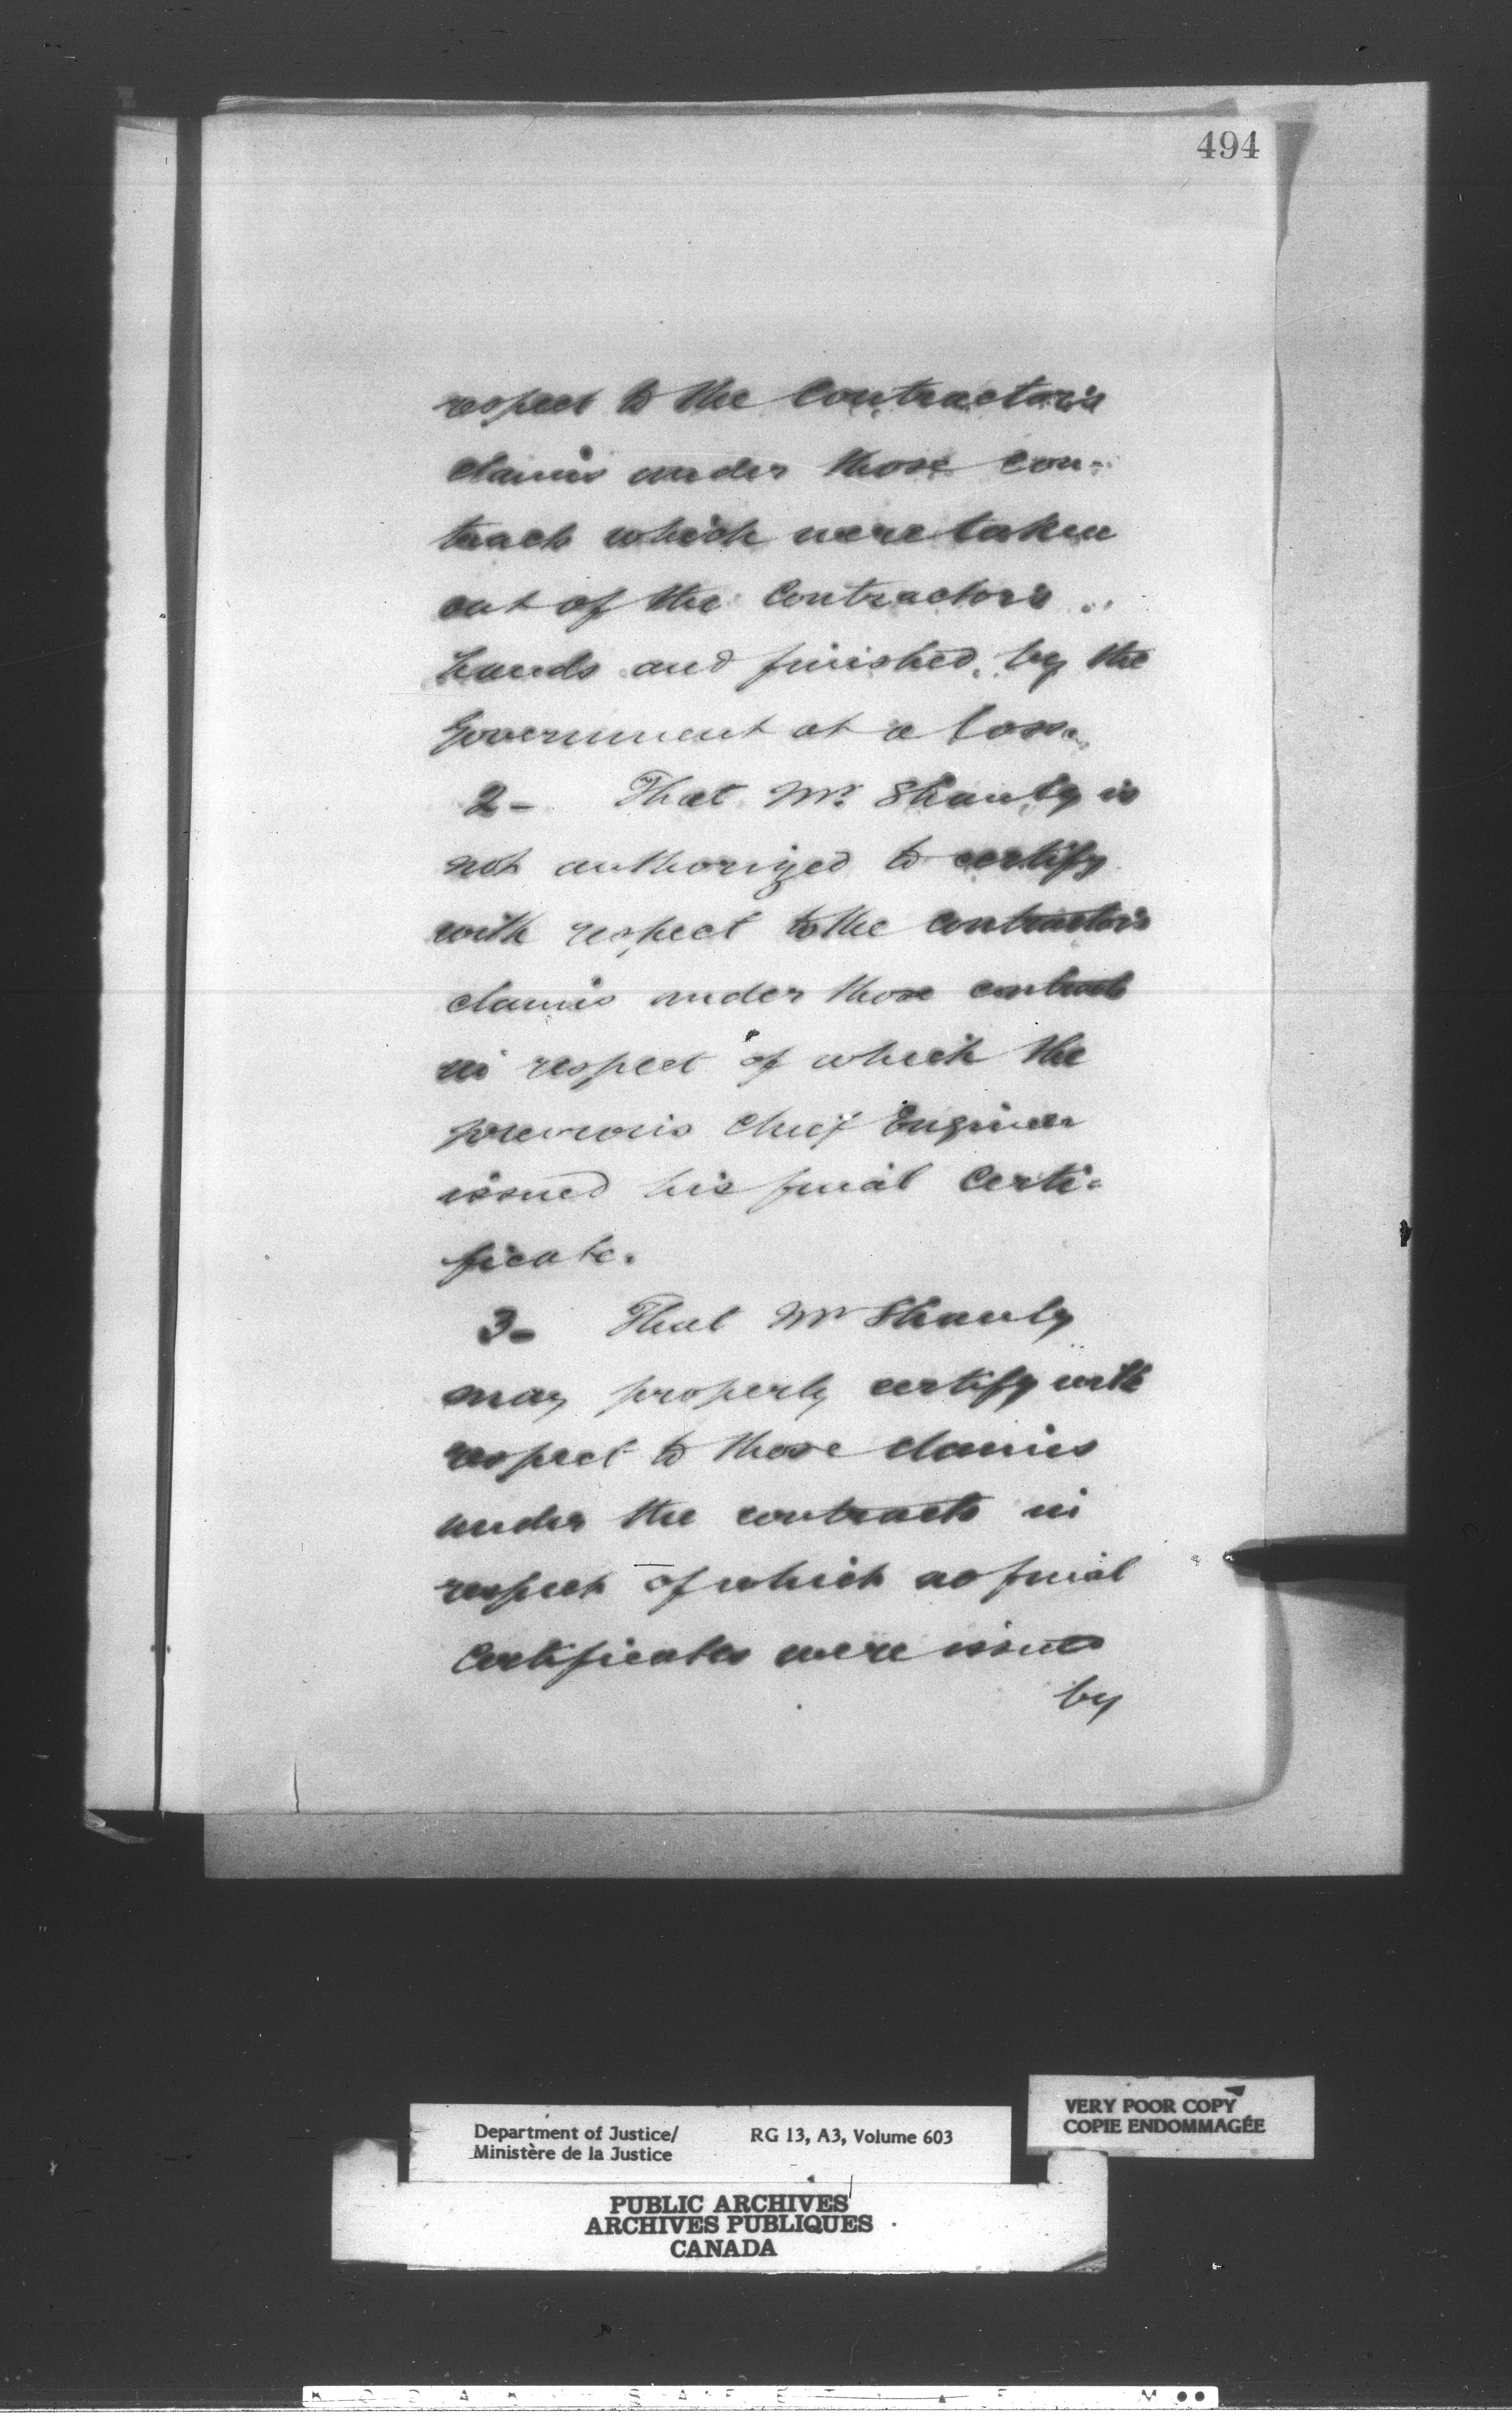 494
respect to the Contractor's
claims under those con-
tracts which were taken
out of the Contractor's
hands and finished by the
Government at a loss.
2- That Mr. Shanly is
not authorized to certify
with respect to the contractor's
claims under those contracts
in respect of which the
previous Chief Engineer
issued his final Certi-
ficate.
3- That Mr Shanly
may properly certify with
respect to those claims
under the contracts in
respect of which no final
Certificates were issued
by
VERY POOR COPY
COPIE ENDOMMAGÉE
Department of Justice/ RG 13, A3, Volume 603
Ministère de la Justice
PUBLIC ARCHIVES
ARCHIVES PUBLIQUES
CANADA